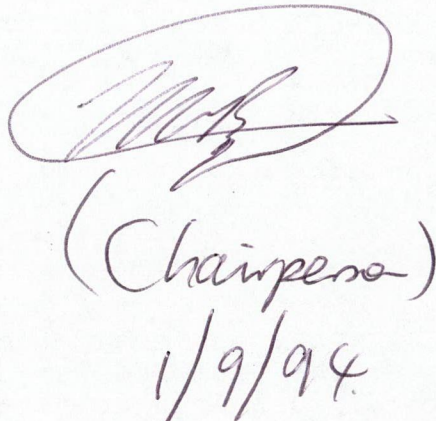 (Chairperson)
1/9/94.